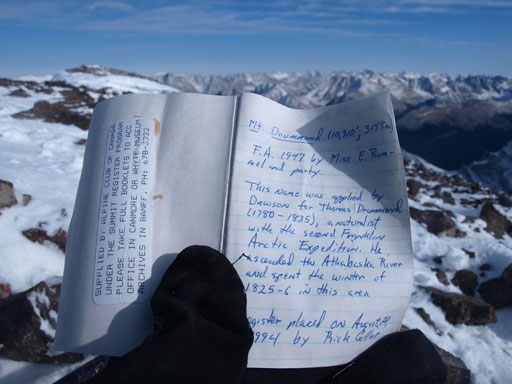 SUPPLIED BY ALPINE CLUB OF CANADA
UNDER THE SUMMIT REGISTER PROGRAM
PLEASE TAKE FULL BOOKLETS TO ACC
OFFICE IN CANMORE OR WHYTE MUSEUM
ARCHIVES IN BANFF. PH: 678-3222
Mt. Drummond (10,310'; 3148m)
F.A. 1947 by Miss E. Rum-
mel and party.
This name was applied by
Dawson for Thomas Drummond
(1780 - 1835), a naturalist
with the second Franklin
Arctic Expedition. He
ascended the Athabaska River
and spent the winter of
1825-6 in this area
egister placed on August
994 by Rick Collier